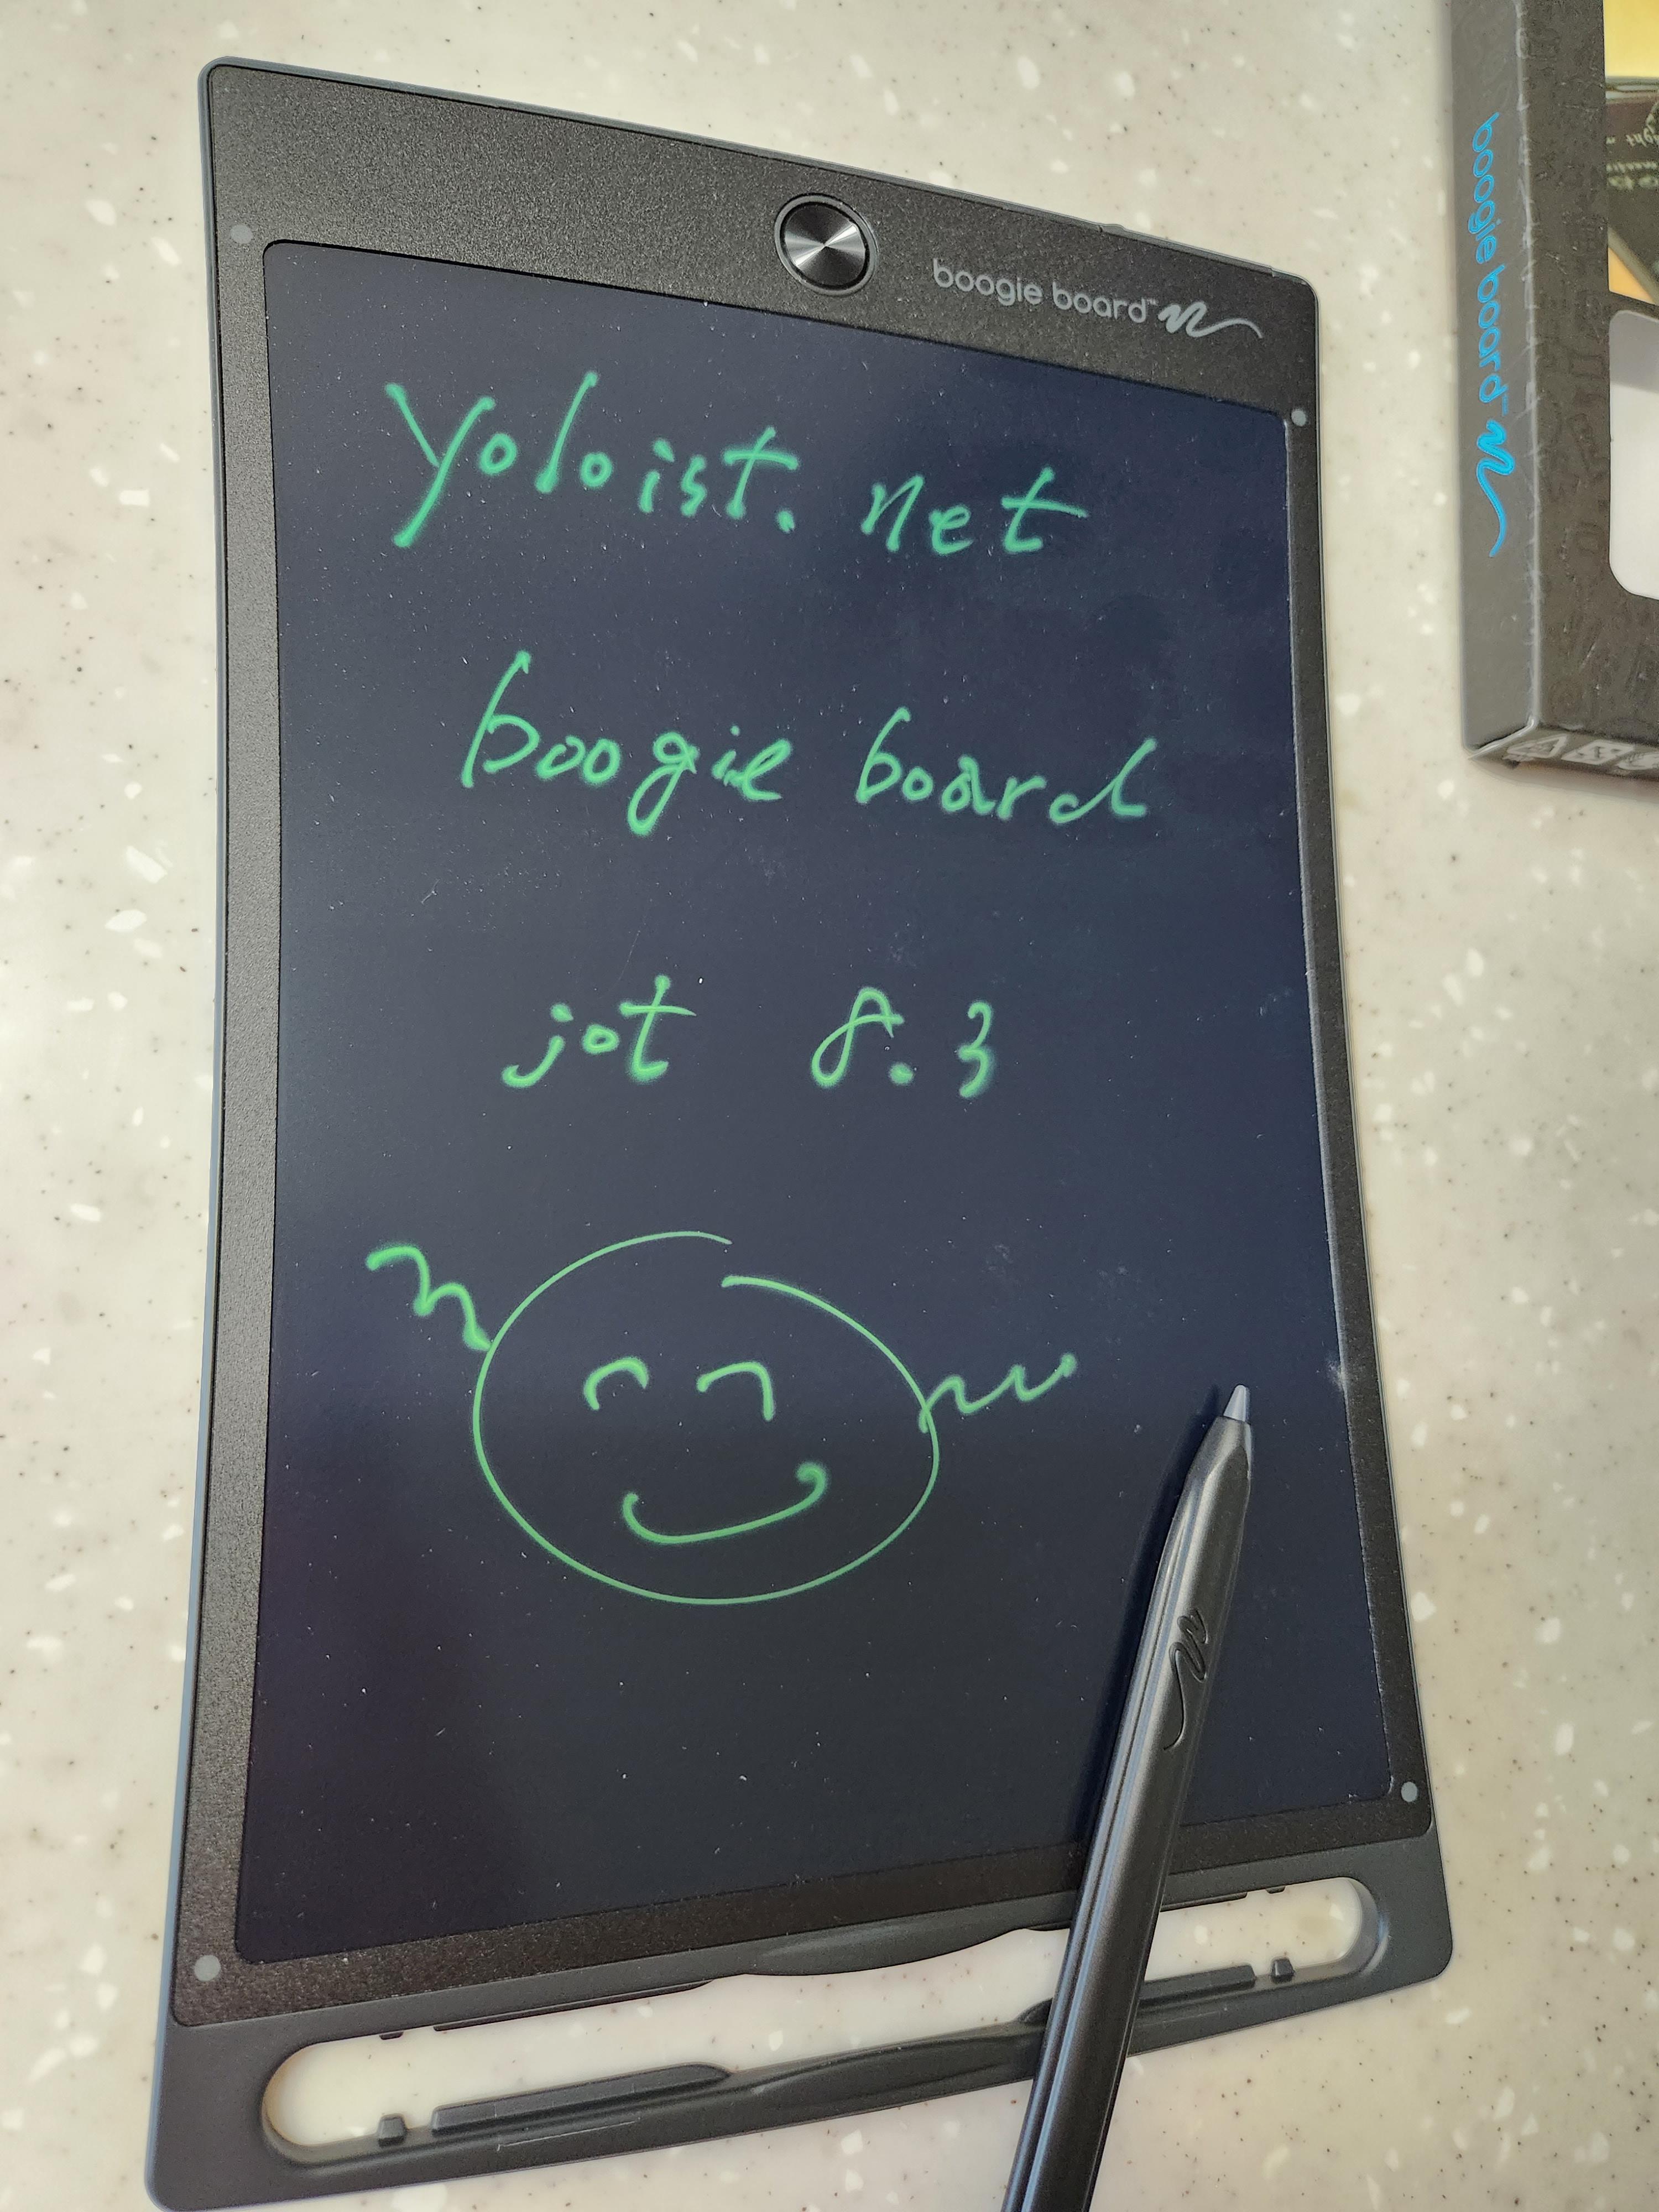 boogie board™
yoloist.net
boogie board
jot 8.3
boogie board™